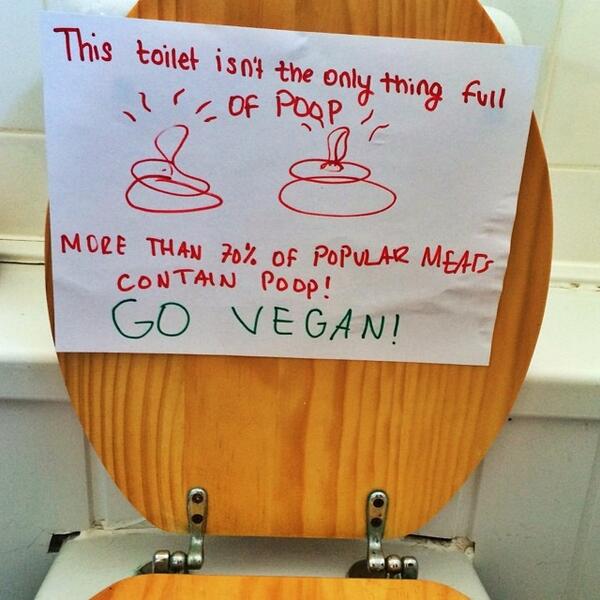 This toilet isn't the only thing full
OF POOP
MORE THAN 70% OF POPULAR MEATS
CONTAIN POOP!
GO VEGAN!